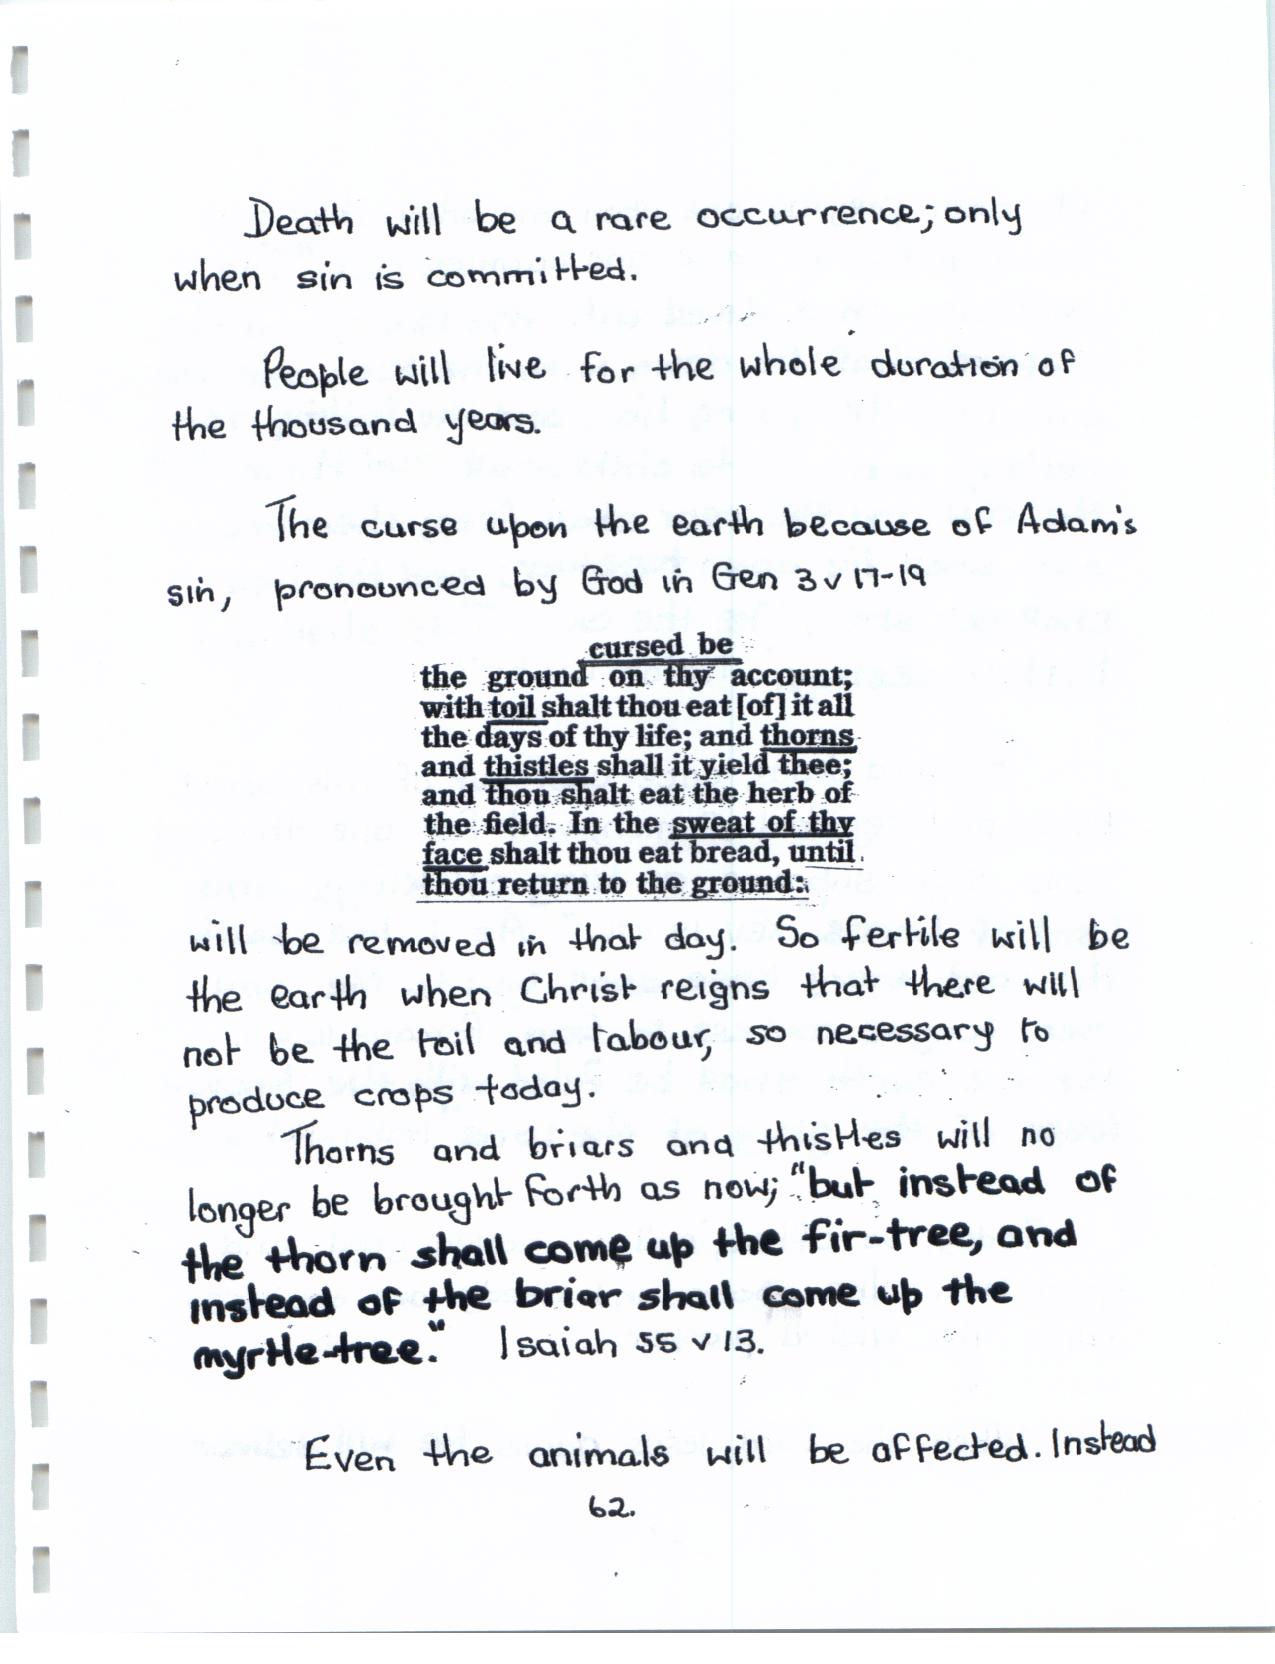 Death will be a rare occurrence; only
when sin is committed.
People will live for the whole duration of
the thousand years.
The curse upon the earth because of Adam's
sin, pronounced by God in Gen 3 v 17-19
cursed be
the ground on thy account;
with toil shalt thou eat [of] it all
the days of thy life; and thorns
and thistles shall it yield thee;
and thou shalt eat the herb of
the field. In the sweat of thy
face shalt thou eat bread, until
thou return to the ground:
will be removed in that day. So fertile will be
the earth when Christ reigns that there will
not be the toil and labour, so necessary to
produce crops today.
Thorns and briars and thistles will no
longer be brought forth as now; "but instead of
the thorn shall come up the fir-tree, and
instead of the briar shall come up the
myrtle-tree." Isaiah 55 v 13.
Even the animals will be affected. Instead
62.